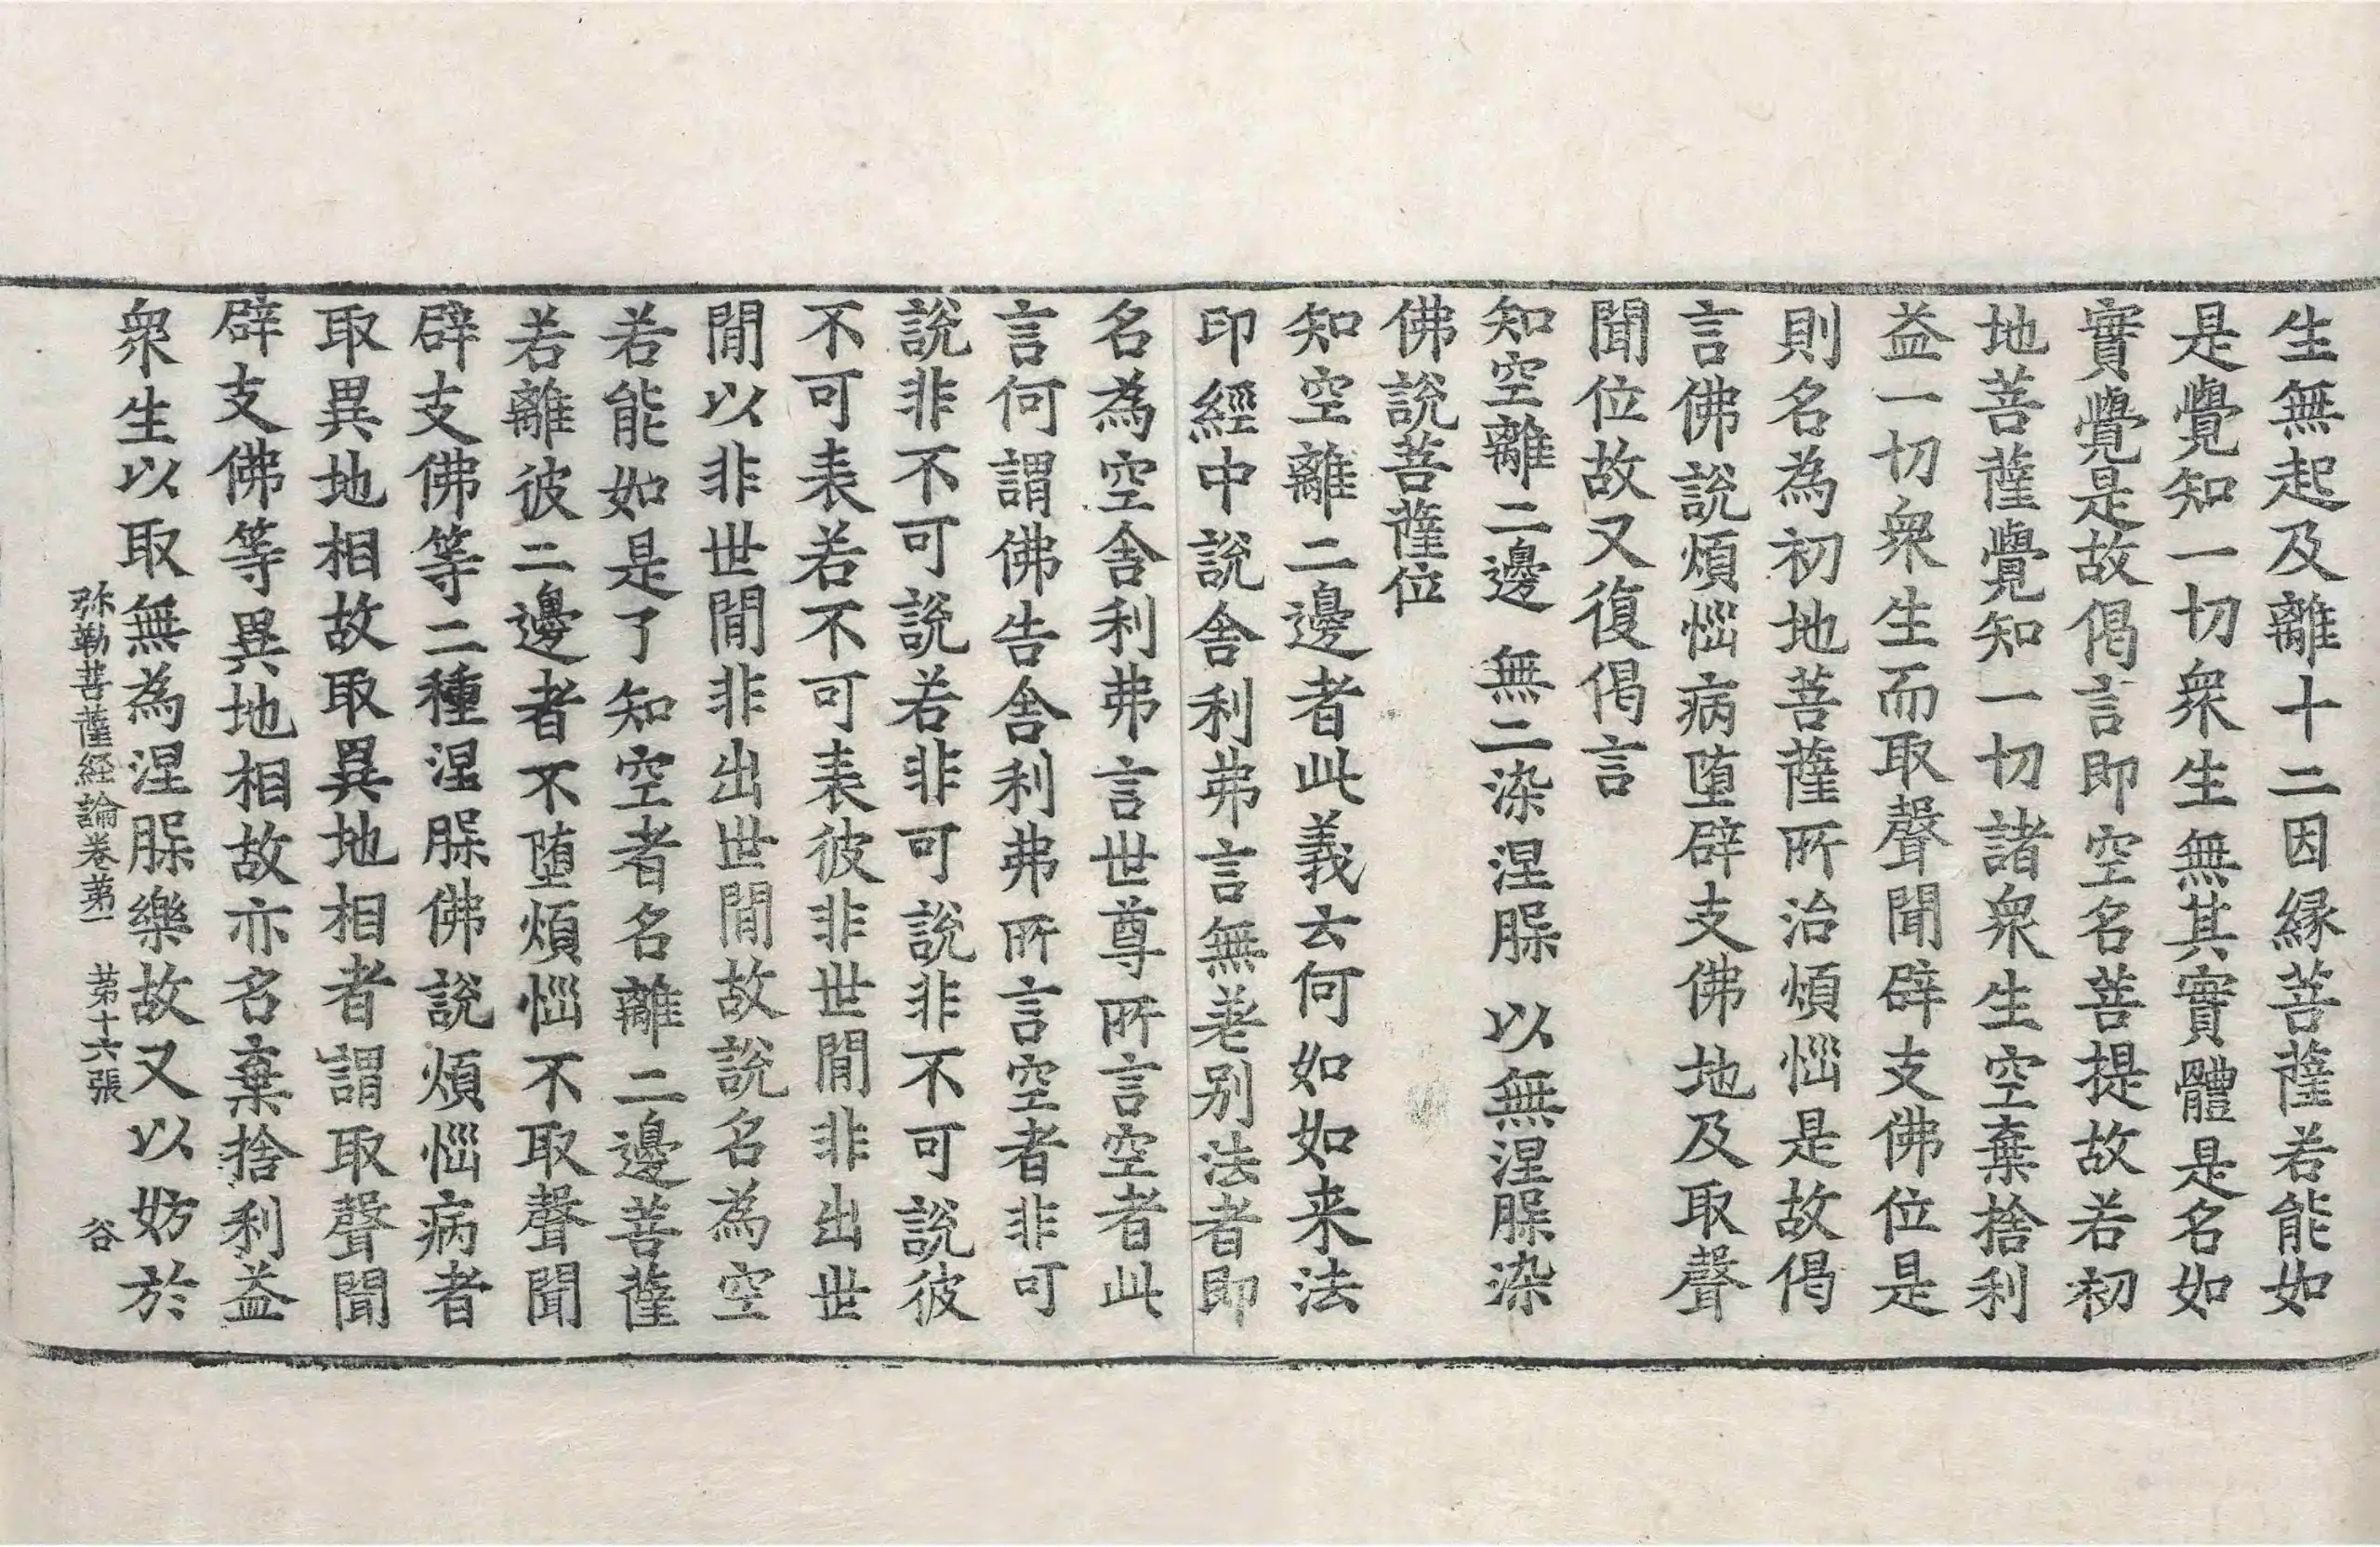 生無起及離十二因縁菩薩若能如
是覺知一切衆生無其實體是名如
實覺是故偈言即空名菩提故若初
地菩薩覺知一切諸衆生空棄捨利
益一切衆生而取聲聞辟支佛位是
則名為初地菩薩所治煩惱是故偈
言佛說煩惱病墮辟支佛地及取聲
聞位故又復偈言
知空離二邊 無二染涅槃 以無涅槃染
佛說菩薩位
知空離二邊者此義云何如如来法
印經中說舍利弗言無差別法者即
名為空舍利弗言世尊所言空者此
言何謂佛告舍利弗所言空者非可
說非不可說若非可說非不可說彼
不可表若不可表彼非世間非出世
間以非世間非出世間故說名為空
若能如是了知空者名離二邊菩薩
若離彼二邊者不墮煩惱不取聲聞
辟支佛等二種涅槃佛說煩惱病者
取異地相故取異地相者謂取聲聞
辟支佛等異地相故亦名棄捨利益
衆生以取無為涅槃樂故又以妨於
弥勒菩薩経論卷苐一 苐十六張 谷